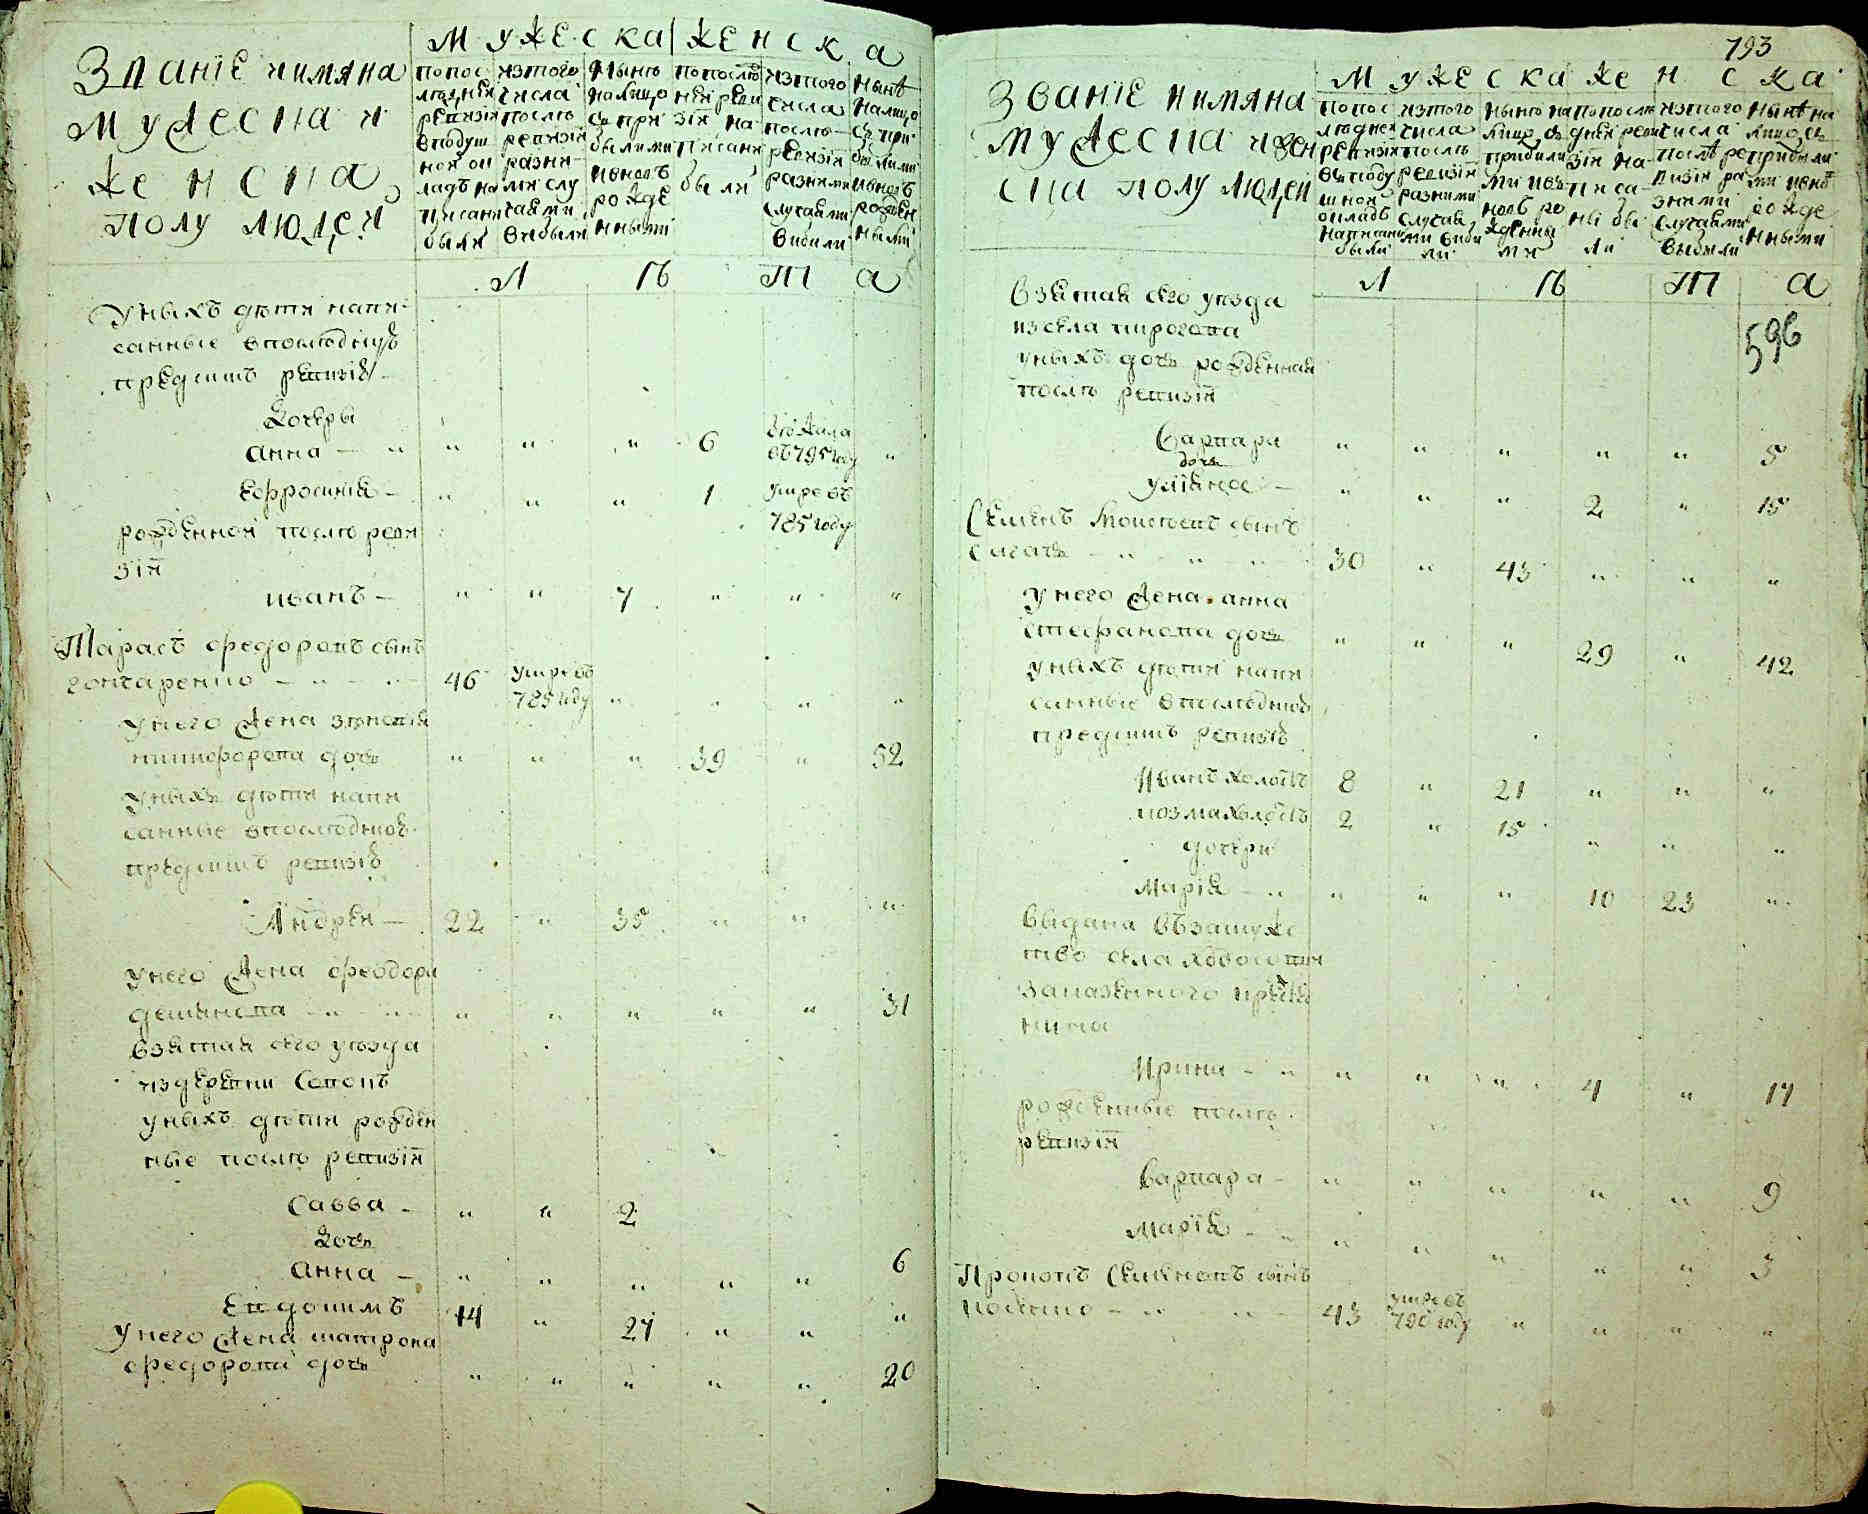 Званіе и имяна
мужеска и
женска
полу людей
мужеска женска
по последней ревизіи в подушной окладъ написаны были
из того числа после ревизіи разными случаями выбыли
ныне на лицо съ прибылыми и вновь рожденными
по последней ревизіи написаны были
из того числа после ревизіи разными случаями выбыли
ныне на лицо съ прибылыми и вновь рожденными
л ѣ т а
У ныхъ дети напи
санные в последнихъ
пред симъ ревизіи
дочеры
Анна — " " " " 6 " 
въ 795 году
Евфросинія — " " " 1 умре въ
785 году
рожденной после реви
зіи
Иванъ — " " 7 " " "
Тарасъ Федоровъ сынъ
Гончаренко — 46 умре въ
785 году " " " "
У него жена Зѣновія
Никифорова дочь " " " 39 " 52
У ныхъ дети напи
санные в последнюю
пред симъ ревизію
Андрей — 22 " 35 " " "
У него жена Феодора
Демянова " " " " " 31
взятая сего уезда
из деревни
У ныхъ дети рожден
ные после ревизіи
Савва — " " 2
дочь
Анна — " " " " " 6
Евдокимъ 14 " 27 " " "
У него жена Матрона
Федорова дочь " " " " " 20
793
Званіе и имяна
мужеска и жен
ска полу людей
мужеска женска
по последней ревизіи в подушной окладъ написаны были
из того числа после ревизіи разными случаями выбыли
ныне на лицо съ прибылыми и вновь рожденными
по последней ревизіи написаны были
из того числа после ревизіи разными случаями выбыли
ныне на лицо съ прибылыми и вновь рожденными
л ѣ т а
596
взятая сего уезда
из села Пирогова
У ныхъ дочь рожденная
после ревизіи
Варвара " " " " " 5
дочь
Уліяное — " " " 2 " 15
сынъ
30 " 43 " " "
У него жена Анна
Стефанова дочь " " " 29 " 42
У ныхъ дети напи
санные в последнюю
пред симъ ревизію
Иванъ холостъ 8 " 21 " " "
Козма холостъ 2 " 15 " " "
дочери
Марія — " " " 10 23 "
выдана въ замуже
ство села
казенного крестя
нина
Ирина — " " " 4 " 17
рожденные после
ревизіи
Варвара — " " " " " 9
Марія — " " " " " 3
Прокопъ сынъ
43 умре въ
790 году " " " "